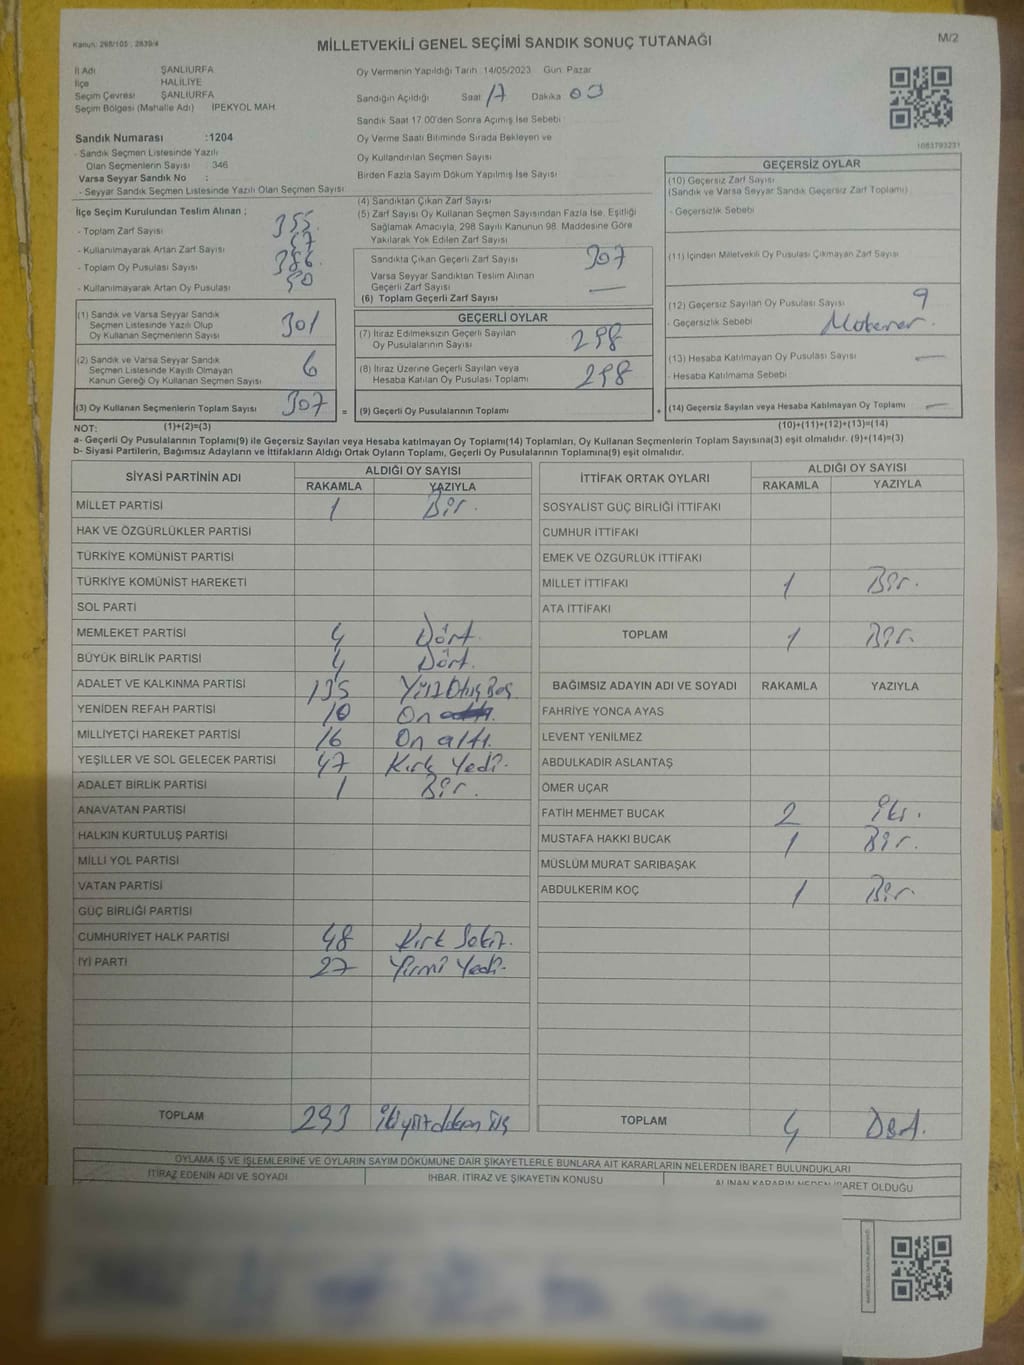 Kanun: 298/105 : 2839/4
MİLLETVEKİLİ GENEL SEÇİMİ SANDIK SONUÇ TUTANAĞI
M/2
İl Adı ŞANLIURFA
İlçe HALİLİYE
Seçim Çevresi ŞANLIURFA
Seçim Bölgesi (Mahalle Adı) İPEKYOL MAH.
Sandık Numarası :1204
- Sandık Seçmen Listesinde Yazılı
Olan Seçmenlerin Sayısı : 346
Varsa Seyyar Sandık No :
- Seyyar Sandık Seçmen Listesinde Yazılı Olan Seçmen Sayısı:
Oy Vermenin Yapıldığı Tarih :14/05/2023 Gün: Pazar
Sandığın Açıldığı Saat 17 Dakika 00
Sandık Saat 17.00'den Sonra Açımış İse Sebebi
Oy Verme Saati Bitiminde Sırada Bekleyen ve
Oy Kullandırılan Seçmen Sayısı
Birden Fazla Sayım Döküm Yapılmış İse Sayısı
1083793231
İlçe Seçim Kurulundan Teslim Alınan ;
- Toplam Zarf Sayısı 355
- Kullanılmayarak Artan Zarf Sayısı
- Toplam Oy Pusulası Sayısı
- Kullanılmayarak Artan Oy Pusulası
(1) Sandık ve Varsa Seyyar Sandık
Seçmen Listesinde Yazılı Olup
Oy Kullanan Seçmenlerin Sayısı 301
(2) Sandık ve Varsa Seyyar Sandık
Seçmen Listesinde Kayıtlı Olmayan
Kanun Gereği Oy Kullanan Seçmen Sayısı 6
(3) Oy Kullanan Seçmenlerin Toplam Sayısı 307
(4) Sandıktan Çıkan Zarf Sayısı
(5) Zarf Sayısı Oy Kullanan Seçmen Sayısından Fazla İse, Eşitliği
Sağlamak Amacıyla, 298 Sayılı Kanunun 98. Maddesine Göre
Yakılarak Yok Edilen Zarf Sayısı
Sandıkta Çıkan Geçerli Zarf Sayısı 307
Varsa Seyyar Sandıktan Teslim Alınan
Geçerli Zarf Sayısı —
(6) Toplam Geçerli Zarf Sayısı
GEÇERLİ OYLAR
(7) İtiraz Edilmeksizin Geçerli Sayılan
Oy Pusulalarının Sayısı 298
(8) İtiraz Üzerine Geçerli Sayılan veya
Hesaba Katılan Oy Pusulası Toplamı 298
= (9) Geçerli Oy Pusulalarının Toplamı
GEÇERSİZ OYLAR
(10) Geçersiz Zarf Sayısı
(Sandık ve Varsa Seyyar Sandık Geçersiz Zarf Toplamı)
- Geçersizlik Sebebi
(11) İçinden Milletvekili Oy Pusulası Çıkmayan Zarf Sayısı
(12) Geçersiz Sayılan Oy Pusulası Sayısı 9
- Geçersizlik Sebebi
(13) Hesaba Katılmayan Oy Pusulası Sayısı —
- Hesaba Katılmama Sebebi
+ (14) Geçersiz Sayılan veya Hesaba Katılmayan Oy Toplamı —
NOT: (1)+(2)=(3)
(10)+(11)+(12)+(13)=(14)
a- Geçerli Oy Pusulalarının Toplamı(9) ile Geçersiz Sayılan veya Hesaba katılmayan Oy Toplamı(14) Toplamları, Oy Kullanan Seçmenlerin Toplam Sayısına(3) eşit olmalıdır. (9)+(14)=(3)
b- Siyasi Partilerin, Bağımsız Adayların ve İttifakların Aldığı Ortak Oyların Toplamı, Geçerli Oy Pusulalarının Toplamına(9) eşit olmalıdır.
SİYASİ PARTİNİN ADI ALDIĞI OY SAYISI
RAKAMLA YAZIYLA
MİLLET PARTİSİ 1 Bir.
HAK VE ÖZGÜRLÜKLER PARTİSİ
TÜRKİYE KOMÜNİST PARTİSİ
TÜRKİYE KOMÜNİST HAREKETİ
SOL PARTİ
MEMLEKET PARTİSİ 4 Dört.
BÜYÜK BİRLİK PARTİSİ 4 Dört.
ADALET VE KALKINMA PARTİSİ 135 YüzOtuzBeş
YENİDEN REFAH PARTİSİ 10 On
MİLLİYETÇİ HAREKET PARTİSİ 16 On altı.
YEŞİLLER VE SOL GELECEK PARTİSİ 47 Kırk Yedi.
ADALET BİRLİK PARTİSİ 1 Bir.
ANAVATAN PARTİSİ
HALKIN KURTULUŞ PARTİSİ
MİLLİ YOL PARTİSİ
VATAN PARTİSİ
GÜÇ BİRLİĞİ PARTİSİ
CUMHURİYET HALK PARTİSİ 48 Kırk Sekiz.
İYİ PARTİ 27 Yirmi Yedi.
TOPLAM 293
İTTİFAK ORTAK OYLARI ALDIĞI OY SAYISI
RAKAMLA YAZIYLA
SOSYALİST GÜÇ BİRLİĞİ İTTİFAKI
CUMHUR İTTİFAKI
EMEK VE ÖZGÜRLÜK İTTİFAKI
MİLLET İTTİFAKI 1 Bir.
ATA İTTİFAKI
TOPLAM 1 Bir.
BAĞIMSIZ ADAYIN ADI VE SOYADI RAKAMLA YAZIYLA
FAHRİYE YONCA AYAS
LEVENT YENİLMEZ
ABDULKADİR ASLANTAŞ
ÖMER UÇAR
FATİH MEHMET BUCAK 2 İki.
MUSTAFA HAKKI BUCAK 1 Bir.
MÜSLÜM MURAT SARIBAŞAK
ABDULKERİM KOÇ 1 Bir.
TOPLAM 4 Dört.
OYLAMA İŞ VE İŞLEMLERİNE VE OYLARIN SAYIM DÖKÜMÜNE DAİR ŞİKAYETLERLE BUNLARA AİT KARARLARIN NELERDEN İBARET BULUNDUKLARI
İTİRAZ EDENİN ADI VE SOYADI İHBAR, İTİRAZ VE ŞİKAYETİN KONUSU ALINAN KARARIN NEDEN İBARET OLDUĞU